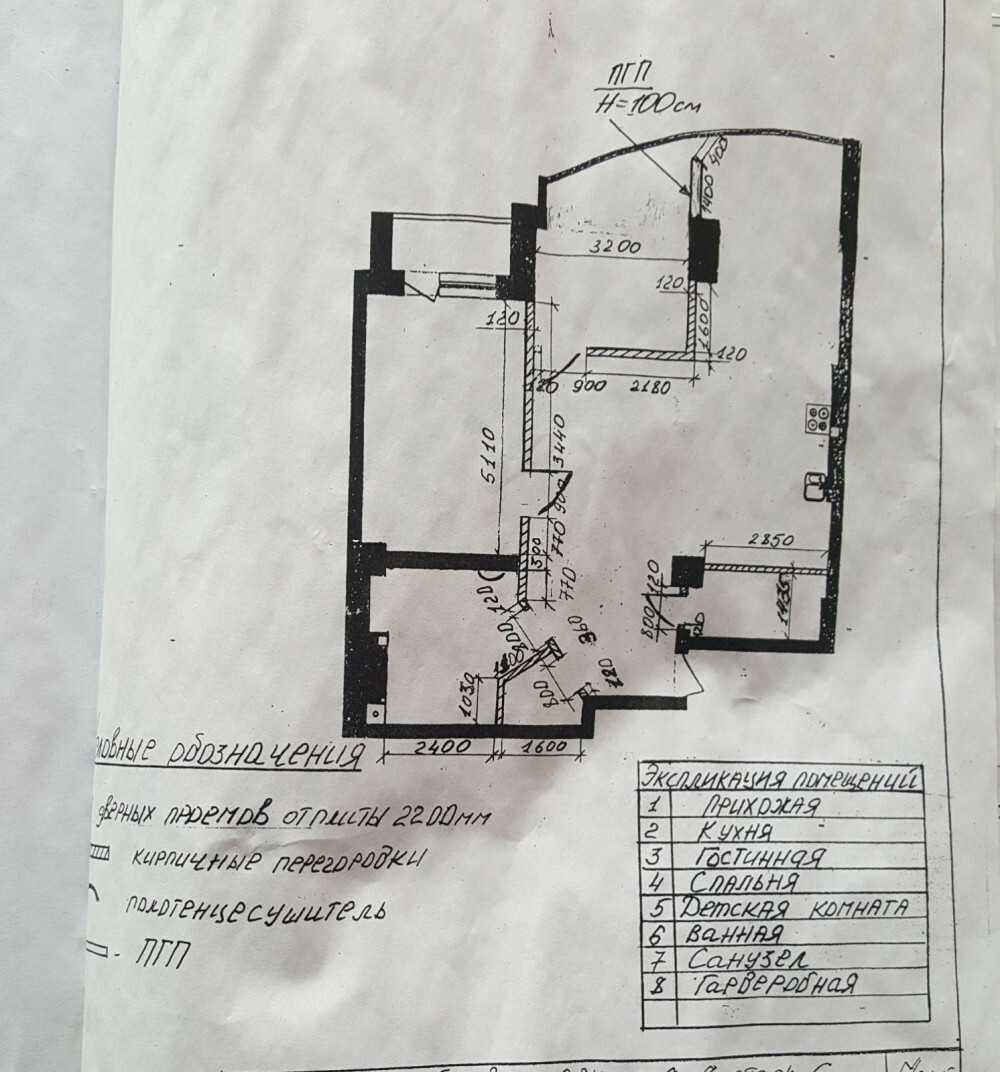 ПГП
H=100см
400
1400
3200
120
1600
120
120
120
900
2180
5110
3440
900
770
300
770
2850
120
1435
800
120
120
800
360
180
800
1030
2400
1600
обозначения
дверных проемов от плиты 2200мм
кирпичные перегородки
полотенцесушитель
- ПГП
Экспликация помещений
1 Прихожая
2 Кухня
3 Гостинная
4 Спальня
5 Детская комната
6 Ванная
7 Санузел
8 Гарверобная